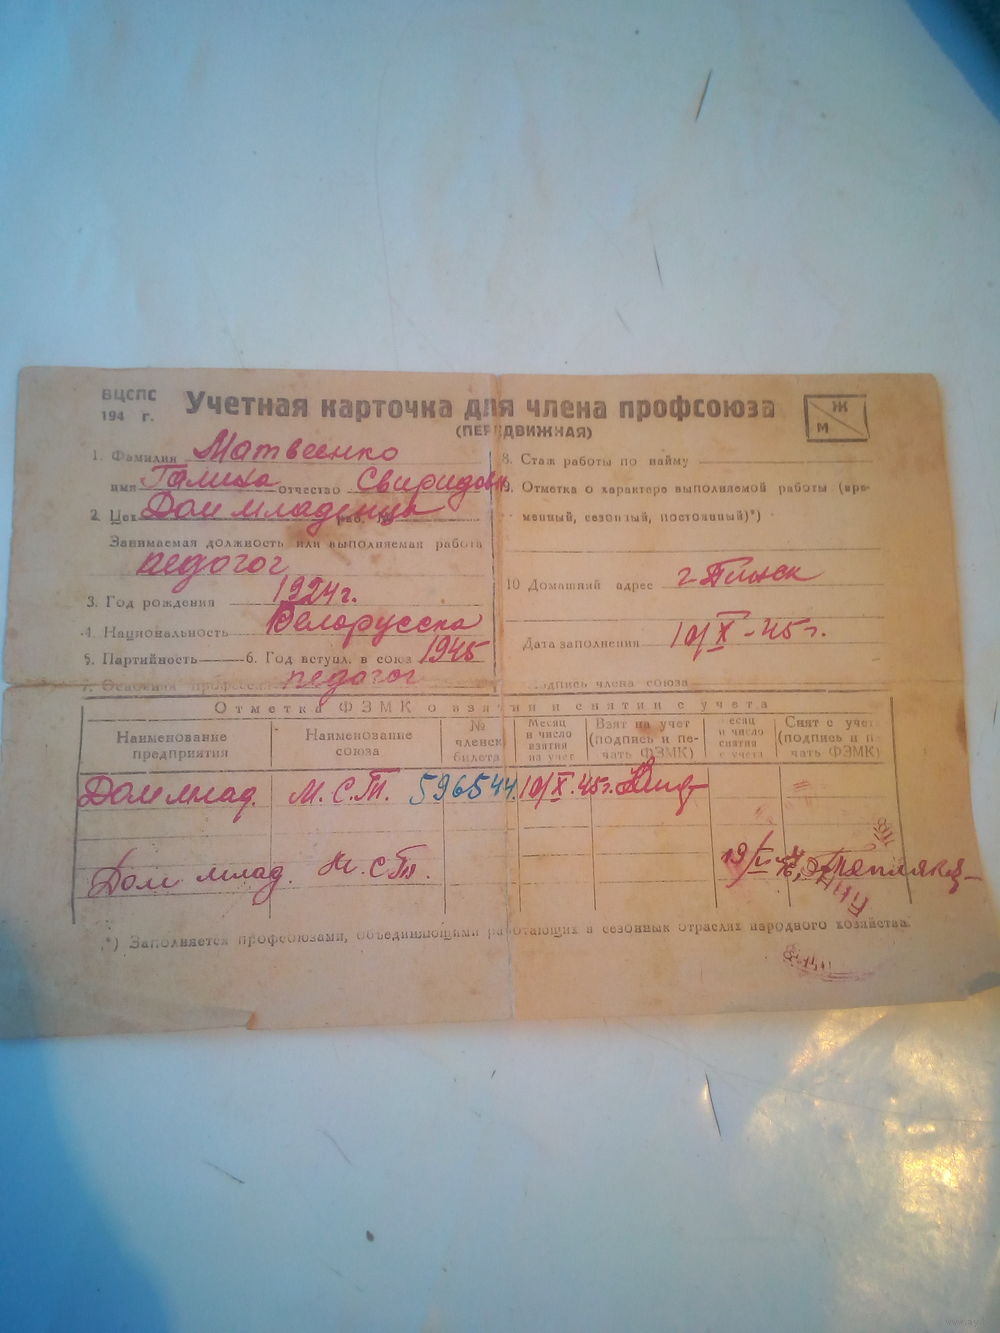 ВЦСПС
194 г.
Учетная карточка для члена профсоюза
(ПЕРЕДВИЖНАЯ)
Ж
М
1. Фамилия Матвеенко
имя Галина отчество Свиридовн
2. Цех Дом младенца
Занимаемая должность или выполняемая работа
педогог
3. Год рождения 1924г.
4. Национальность Белорусска
5. Партийность 6. Год вступл. в союз 1945
7. Основная профессия педогог
8. Стаж работы по найму
9. Отметка о характере выполняемой работы (вре-
менный, сезонный, постоянный)*)
10 Домашний адрес г. Пинск
Дата заполнения 10/X-45г.
подпись члена союза
Отметка ФЗМК о взятии и снятии с учета
Наименование предприятия
Наименование союза
№ членск билета
Месяц и число взятия на учет
Взят на учет (подпись и пе-чать ФЗМК)
Месяц и число снятия с учета
Снят с учета (подпись и пе-чать ФЗМК)
Дом млад. М.С.Т. 596544 10/X.45г.
Дом млад. М.С.Т.
*) Заполняется профсоюзами, объединяющими работающих в сезонных отраслях народного хозяйства.